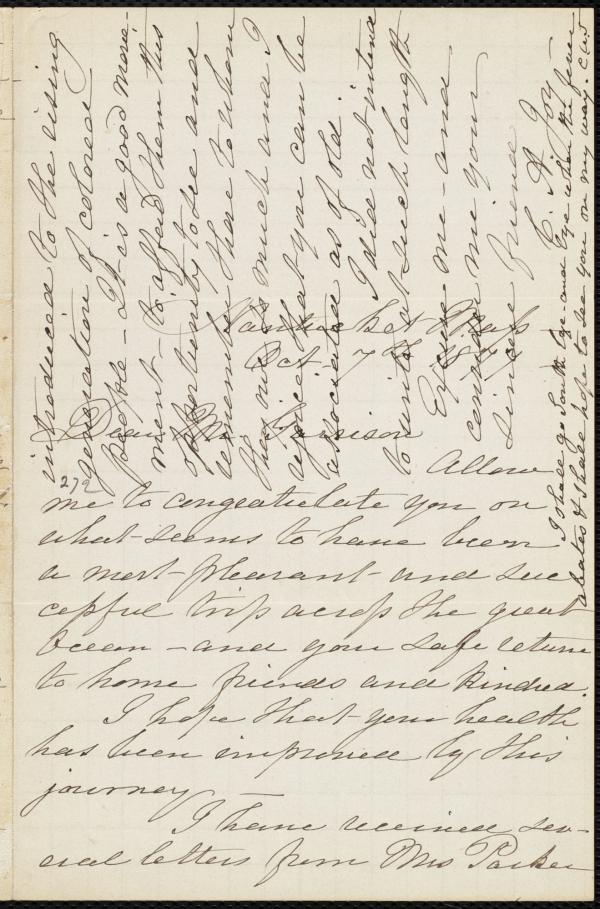 Nantucket Mass
Oct 7th 1877
Dear Mr Garrison
Allow
me to congratulate you on
what seems to have been
a most pleasant and suc
cessful trip across the great
Ocean - and your safe return
to home friends and kindred.
I hope that your health
has been improved by this
journey
I have received sev-
eral letters from Mrs Parker
272
introduced to the rising
generation of colored
people - It is a good move-
ment - to afford them this
opportunity to see and
remember those to whom
they owe so much and I
rejoice that you can be
associated as of old.
I did not intend
to write at such length
Excuse me - and
consider me your
sincere friend
I shall go South bye - and bye when the fever
abates & I shall hope to see you on my way.